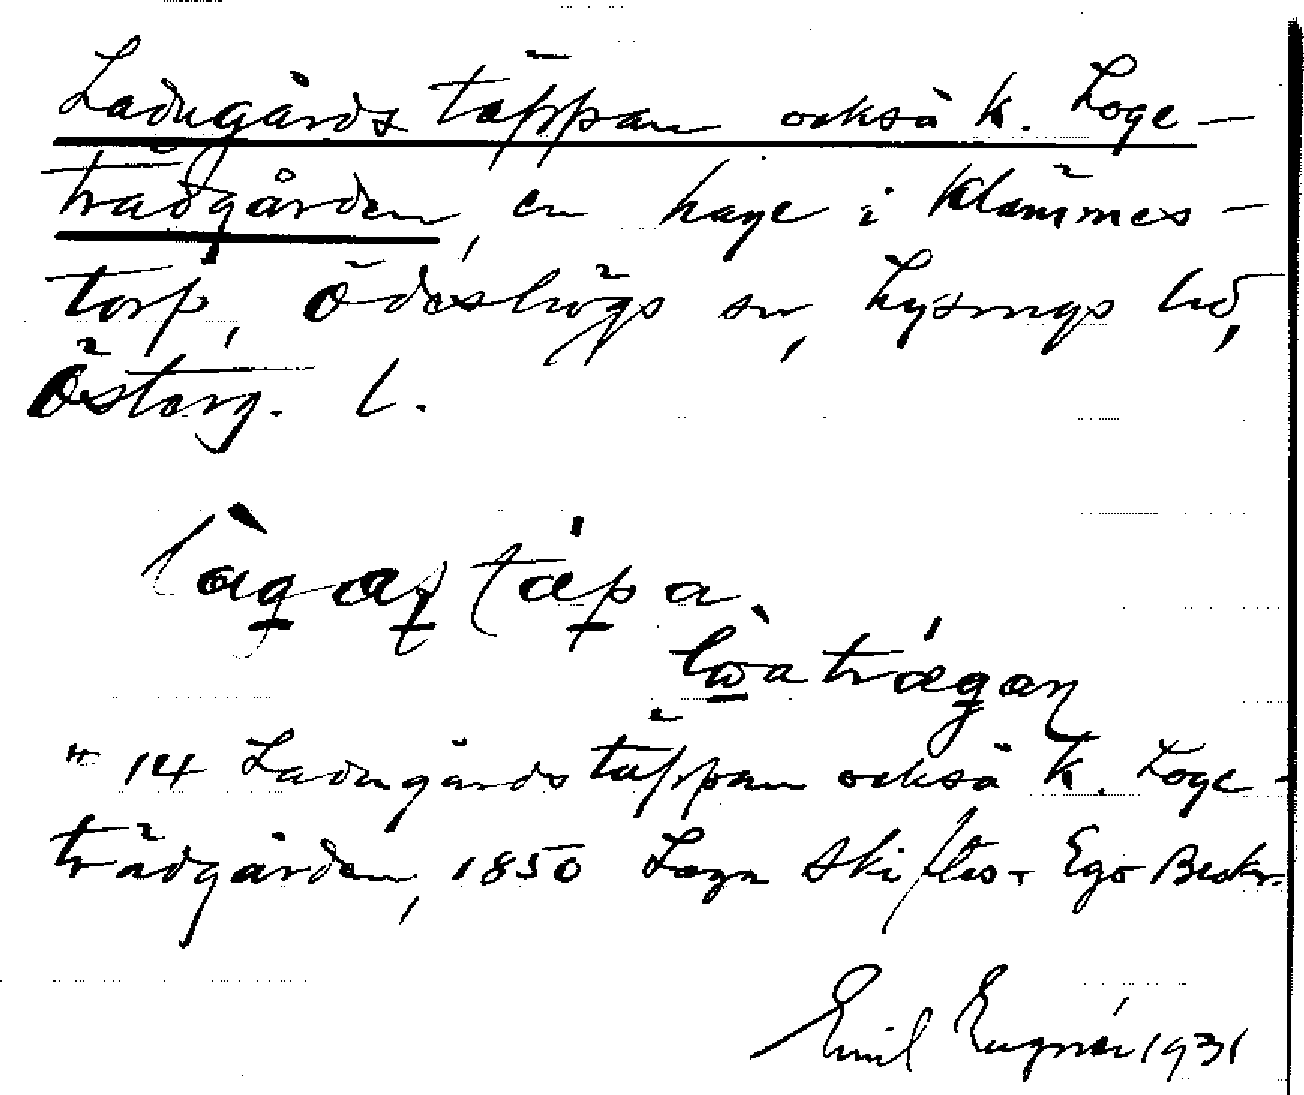 Ladugårds täppan också k. Loge-
trädgården, en hage i Klämmes-
torp, Ödeshögs sn, Lysings hd,
Österg. l.
làgaștápa
lòatrǽgan
" 14 Ladugårdstäppan också k. Loge-
trädgården, 1850 Laga Skiftes- Ego Beskr.
Emil 1931